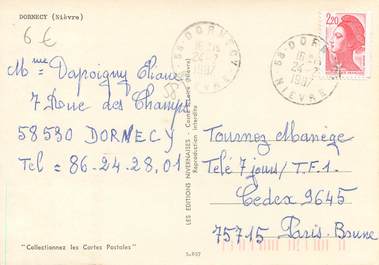 DORNECY (Nièvre)
6 €
58 - DORNECY
NIEVRE
24-7
1987
58 - DORNECY
NIEVRE
24-7
1987
2,20
Mme Dapoigny Eliane
7 Rue des Champs
58530 DORNECY
Tel = 86-24-28,01
LES EDITIONS NIVERNAISES - Cosne s/Loire (Nièvre)
Reproduction interdite
Tournez Manège
Télé 7 jours/T.F.1.
Cedex 9645
75715 Paris-Brune
"Collectionnez les Cartes Postales"